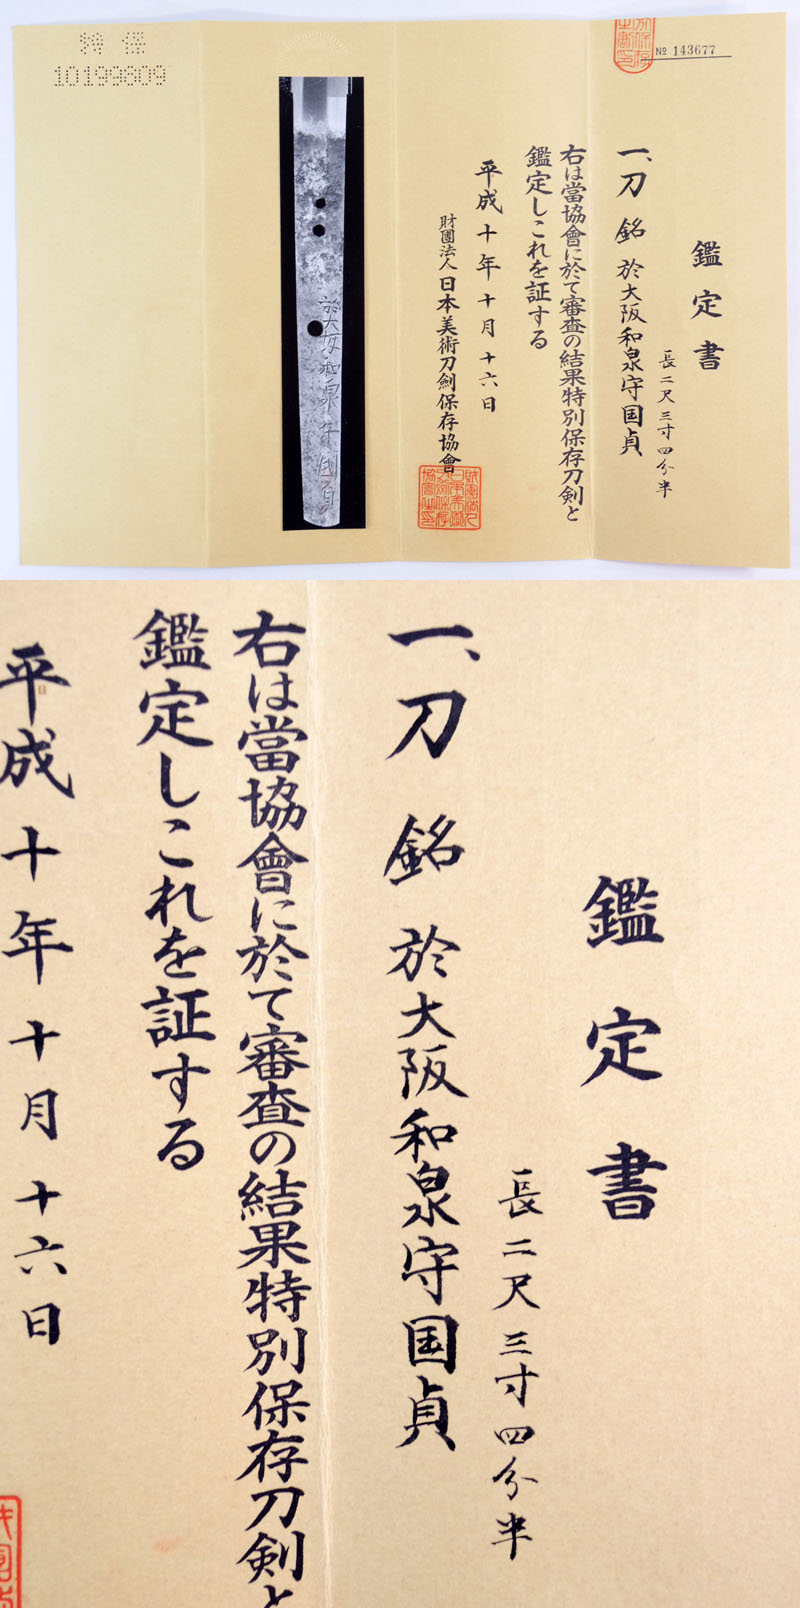 特保
10199809
№ 143677
鑑定書
長二尺三寸四分半
一、刀 銘 於大阪和泉守国貞
右は當協會に於て審査の結果特別保存刀剣と
鑑定しこれを証する
平成十年十月十六日
財團法人日本美術刀剣保存協會
於大阪和泉守国貞
鑑定書
長二尺三寸四分半
一、刀 銘 於大阪和泉守国貞
右は當協會に於て審査の結果特別保存刀剣と
鑑定しこれを証する
平成十年十月十六日